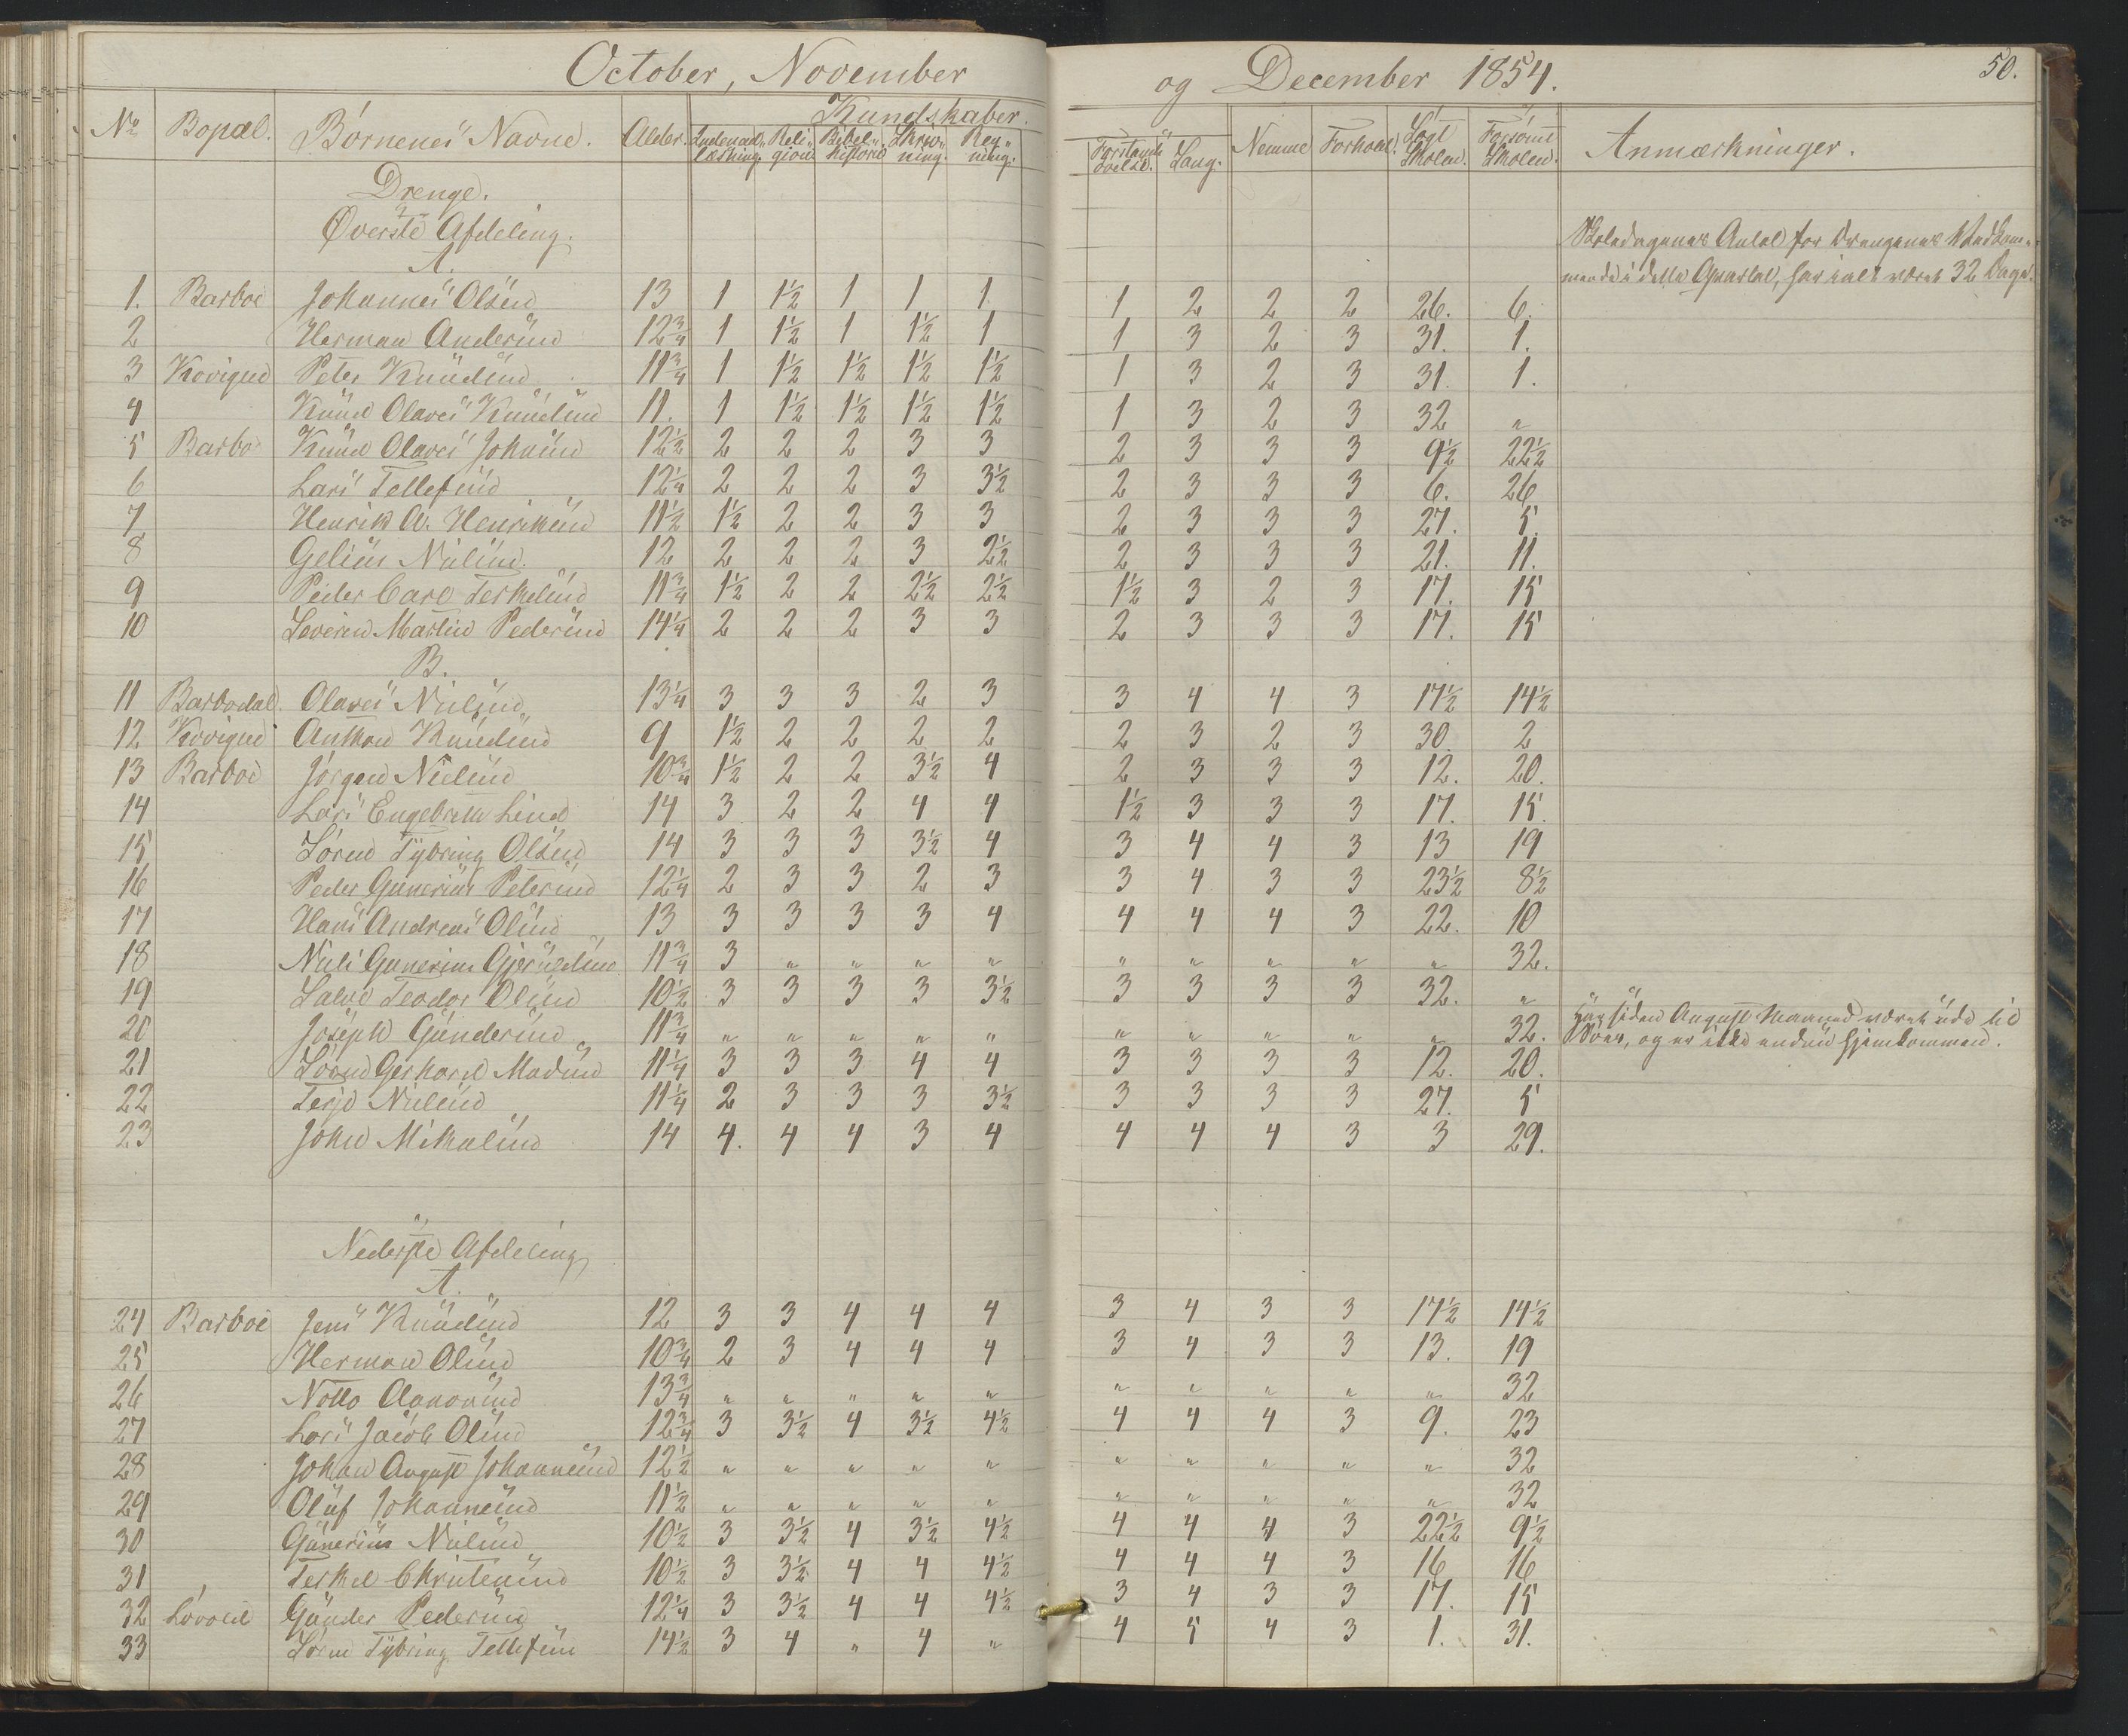 October, November og December 1854. 50.
Kundskaber.
No Bopæl. Börnenes Navne. Alder. Indenad- læsning. Reli- gion Bibel- historie Skriv- ning. Reg- ning. Forstands övelse. Sang. Nemme Forhold. Sögt Skolen. Forsömt Skolen. Anmærkninger.
Drenge.
Øverste Afdeling.
A.
Skoledagenes Antal for Drengenes Vedkom-
mende i dette Qvartal, har i alt været 32 Dage.
1. Barboe Johannes Olsen 13 1 1½ 1 1 1 1 2 2 2 26. 6.
2 Herman Andersen 12¾ 1 1½ 1 1½ 1 1 3 2 3 31. 1.
3 Kovigen Peter Knudsen 11¾ 1 1½ 1½ 1½ 1½ 1 3 2 3 31. 1.
4 Knud Olaves Knudsen 11. 1 1½ 1½ 1½ 1½ 1 3 2 3 32 "
5 Barbo Knud Olaves Johnsen 12½ 2 2 2 3 3 2 3 3 3 9½ 22½
6 Lars Tellefsen 12¼ 2 2 2 3 3½ 2 3 3 3 6. 26
7 Henrik A. Henriksen 11½ 1½ 2 2 3 3 2 3 3 3 27. 5.
8 Gelius Nielsen. 12 2 2 2 3 2½ 2 3 3 3 21. 11.
9 Peder Carl Terkelsen 11¾ 1½ 2 2 2½ 2½ 1½ 3 2 3 17. 15
10 Severin Martin Pedersen 14¼ 2 2 2 3 3 2 3 3 3 17. 15
B.
11 Barbodal. Olaves Nielsen 13¼ 3 3 3 2 3 3 4 4 3 17½ 14½
12 Kovigen Anthon Knudsen 9 1½ 2 2 2 2 2 3 2 3 30. 2
13 Barboe Jörgen Nielsen 10¾ 1½ 2 2 3½ 4 2 3 3 3 12. 20.
14 Lars Engebreth Lind 14 3 2 2 4 4 1½ 3 3 3 17. 15.
15 Sören Tybring Olsen 14 3 3 3 3½ 4 3 4 4 3 13 19
16 Peder Gunerius Petersen 12¼ 2 3 3 2 3 3 4 3 3 23½ 8½
17 Hans Andreas Olsen 13 3 3 3 3 4 4 4 4 3 22. 10
18 Niels Gunerius Gjeruldsen 11¾ 3 " " " " " " " " " 32.
19 Salve Teodor Olsen 10½ 3 3 3 3 3½ 3 3 3 3 32. "
20 Joseph Gundersen 11¾ " " " " " " " " " " 32. har siden August Maaned været ude til
Söes, og er ikke endnu hjemkommen.
21 Sören Gerhard Madsen 11¼ 3 3 3 4 4 3 3 3 3 12. 20.
22 Terje Nielsen 11¼ 2 3 3 3 3½ 3 3 3 3 27. 5
23 John Mikalsen 14 4. 4 4 3 4 4 4 4 3 3 29.
Nederste Afdeling
A.
24 Barboe Jens Knudsen 12 3 3 4 4 4 3 4 3 3 17½ 14½
25 Herman Olsen 10¾ 2 3 4 4 4 3 4 3 3 13. 19
26 Notto Aanonsen 13¾ " " " " " " " " " " 32
27 Lars Jacob Olsen 12¾ 3 3½ 4 3½ 4½ 4 4 4 3 9. 23
28 Johan August Johannesen 12½ " " " " " " " " " " 32
29 Oluf Johannesen 11½ " " " " " " " " " " 32
30 Gunerius Nielsen 10½ 3 3½ 4 3½ 4½ 4 4 4 3 22½ 9½
31 Terkel Christensen 10½ 3 3½ 4 4 4½ 4 4 4 3 16 16
32 Lövold Gunder Pedersen 12¼ 3 3½ 4 4 4½ 3 4 3 3 17. 15
33 Sören Tybring Tellefsen 14½ 3 4 " 4 " 4 5 4 3 1. 31.